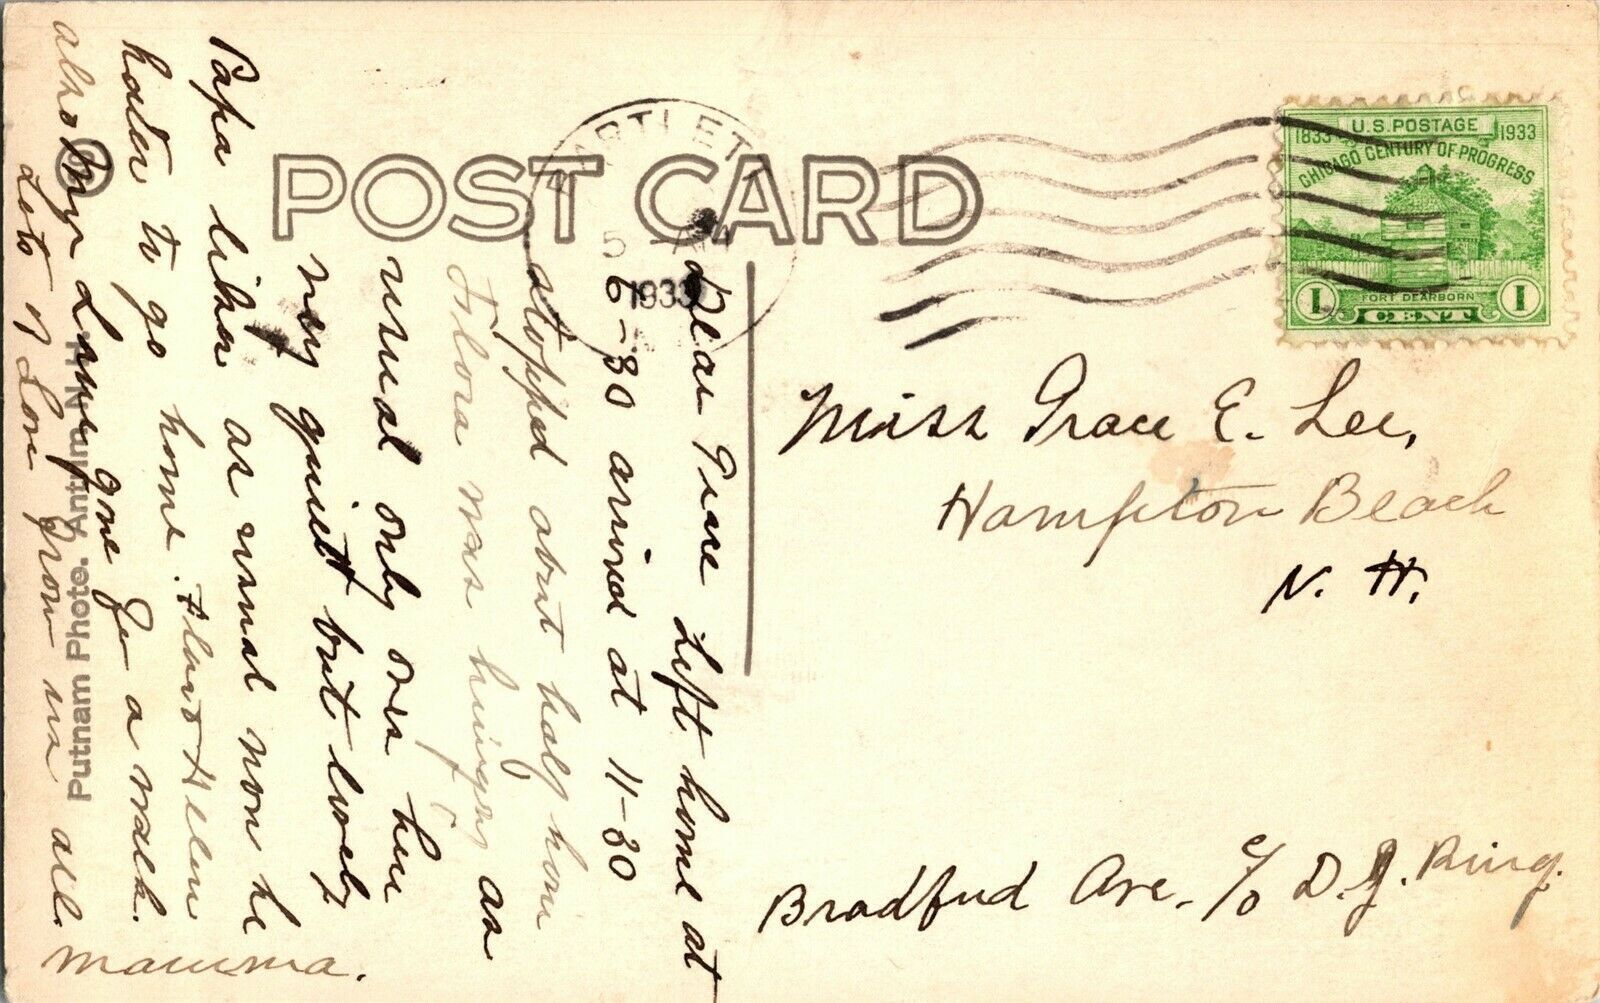 POST CARD
BARTLETT
5
1933
U.S. POSTAGE
1833 1933
CHICAGO CENTURY OF PROGRESS
FORT DEARBORN
1 CENT 1
Dear Grace Left home at
6-30 arrived at 11-30
stopped about half hour
Flora was hungry as
usual only over here
very quiett but lovely
Papa likes as usual now he
hates to go home. Flora & Helen
gone for a walk.
Lots of Love from us all.
mamma.
Miss Grace E. Lee,
Hampton Beach
N. H.
Bradford Ave. c/o D. J. Ring.
© Putnam Photo. Antrim N.H.